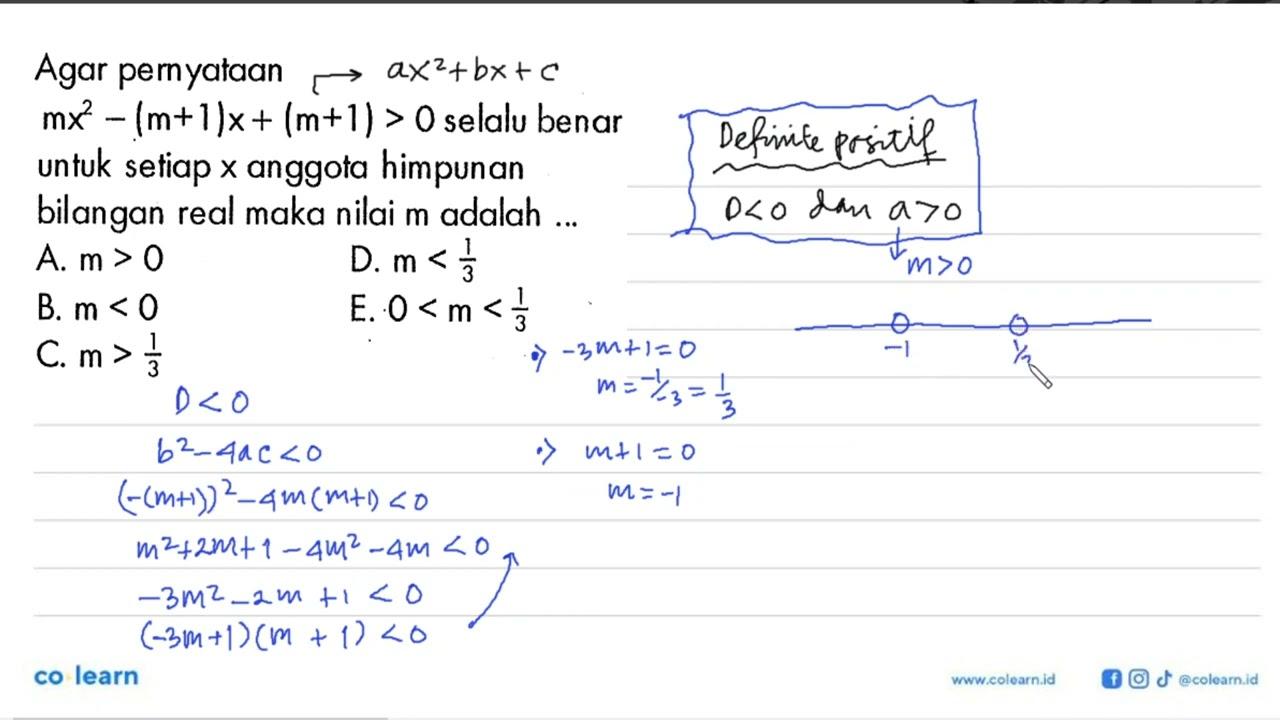 Agar pernyataan → ax²+bx+c
mx² – (m+1)x + (m+1) > 0 selalu benar
untuk setiap x anggota himpunan
bilangan real maka nilai m adalah ...
A. m > 0
D. m < 1/3
B. m < 0
E. 0 < m < 1/3
C. m > 1/3
Definite positif
D<0 dan a>0
m>0
-1
D<0
b²-4ac<0
(-(m+1))²-4m(m+1)<0
m²+2m+1-4m²-4m<0
-3m²-2m+1<0
(-3m+1)(m+1)<0
•) -3m+1=0
m=-1/-3=1/3
•) m+1=0
m=-1
co learn
www.colearn.id
@colearn.id